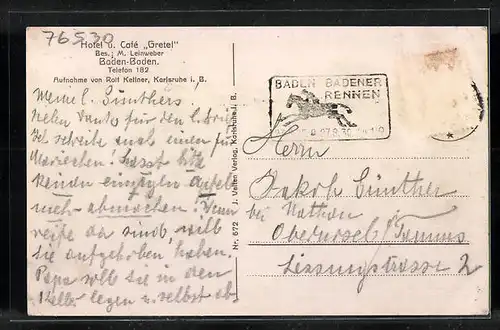 76530
Hotel u. Café „Gretel"
Bes.: M. Leinweber
Baden-Baden.
Telefon 182
Aufnahme von Rolf Kellner, Karlsruhe i. B.
Meine l. Günthers.
Vielen Dank für den l. Brief
schreibe auch einen für
Mariechen. Lasst bitte
keinen einzigen Apfel
mehr abmachen! Wenn
reife da sind will
sie aufgehoben haben.
Papa soll sie in den
Keller legen u. selbst ab
Nr. 672 J. Velten Verlag, Karlsruhe i. B.
BADEN BADENER
RENNEN
Herrn
Jakob Günther
bei Nathan
Oberursel/Taunus
Lessingstrasse 2